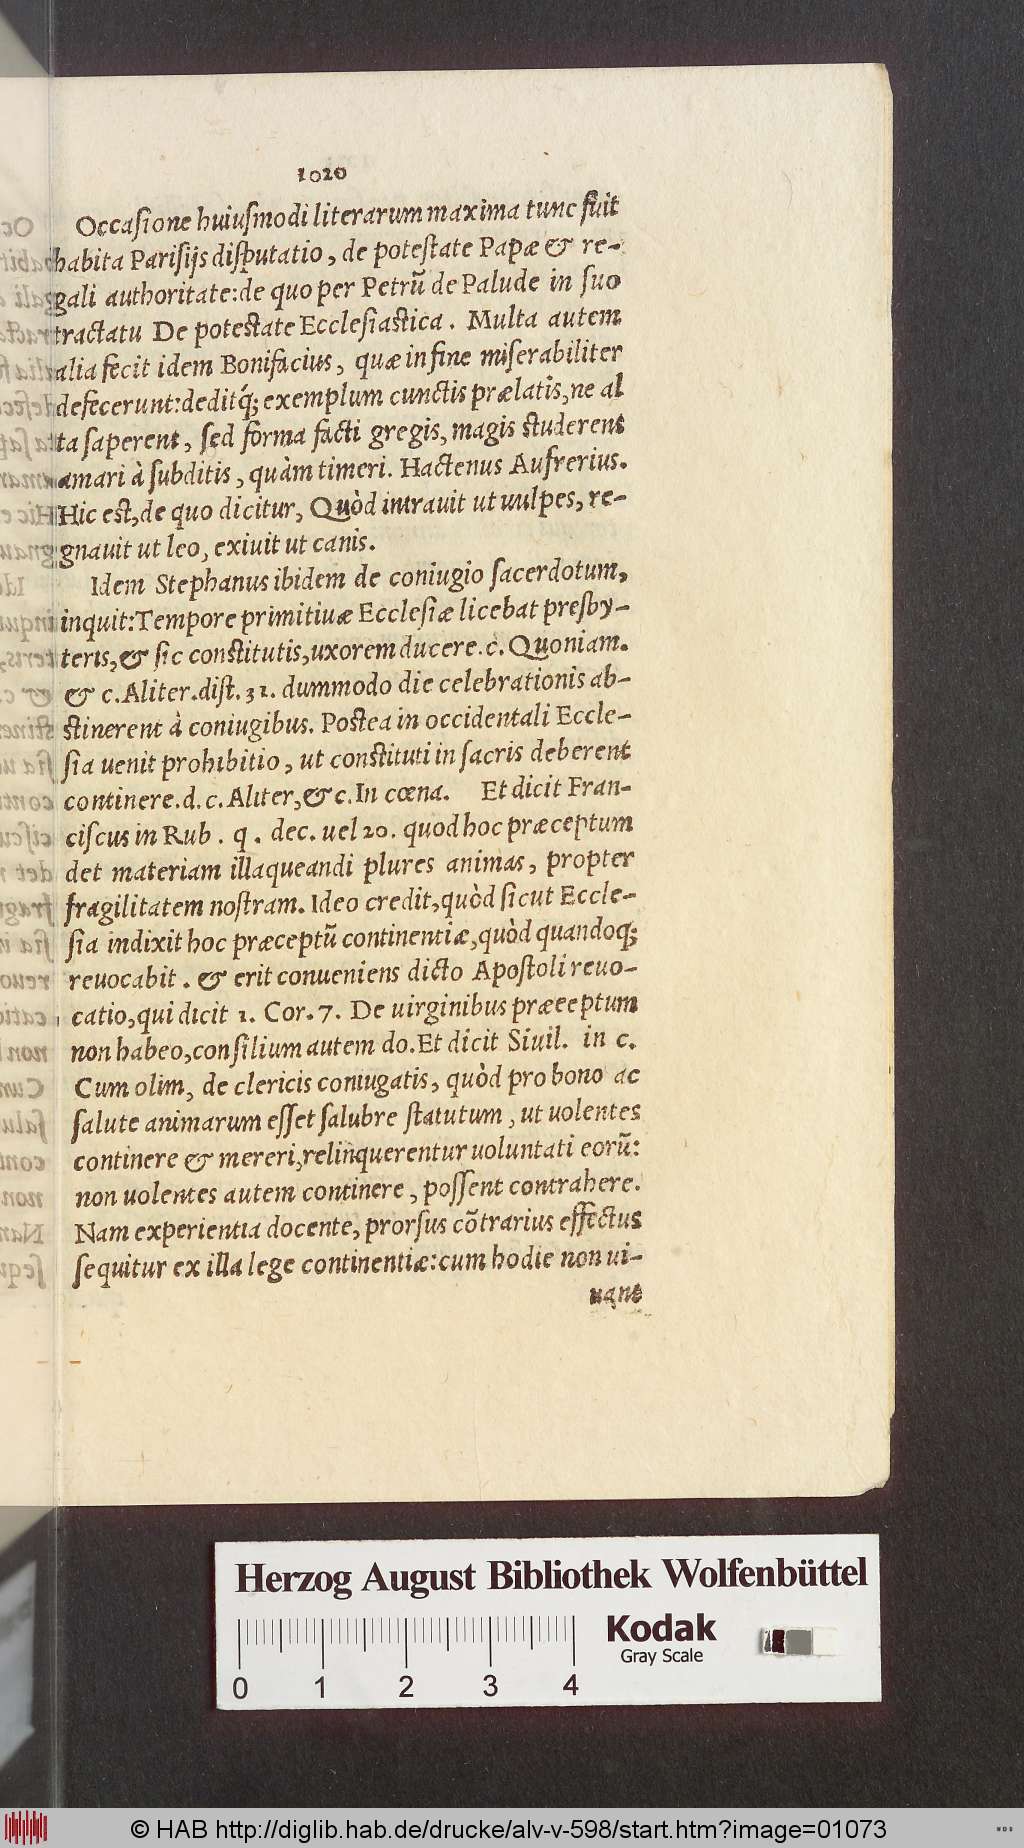 1020
Occaſione huiuſmodi literarum maxima tunc fuit
habita Pariſijs diſputatio, de poteſtate Papæ & re-
gali authoritate: de quo per Petrũ de Palude in ſuo
tractatu De poteſtate Eccleſiaſtica. Multa autem
alia fecit idem Bonifacius, quæ in fine miſerabiliter
defecerunt: deditq́; exemplum cunctis prælatis, ne al
ta ſaperent, ſed forma facti gregis, magis ſtuderent
amari à ſubditis, quàm timeri. Hactenus Aufrerius.
Hic eſt, de quo dicitur, Quòd intrauit ut uulpes, re-
gnauit ut leo, exiuit ut canis.
Idem Stephanus ibidem de coniugio ſacerdotum,
inquit: Tempore primitiuæ Eccleſiæ licebat presby-
teris, & ſic conſtitutis, uxorem ducere. c. Quoniam.
& c. Aliter. diſt. 31. dummodo die celebrationis ab-
ſtinerent à coniugibus. Poſtea in occidentali Eccle-
ſia uenit prohibitio, ut conſtituti in ſacris deberent
continere. d. c. Aliter, & c. In cœna. Et dicit Fran-
ciſcus in Rub. q. dec. uel 20. quod hoc præceptum
det materiam illaqueandi plures animas, propter
fragilitatem noſtram. Ideo credit, quòd ſicut Eccle-
ſia indixit hoc præceptũ continentiæ, quòd quandoq;
reuocabit. & erit conueniens dicto Apoſtoli reuo-
catio, qui dicit 1. Cor. 7. De uirginibus præceptum
non habeo, conſilium autem do. Et dicit Siuil. in c.
Cum olim, de clericis coniugatis, quòd pro bono ac
ſalute animarum eſſet ſalubre ſtatutum, ut uolentes
continere & mereri, relinquerentur uoluntati eorũ:
non uolentes autem continere, poſſent contrahere.
Nam experientia docente, prorſus cõtrarius effectus
ſequitur ex illa lege continentiæ: cum hodie non ui-
uant
Herzog August Bibliothek Wolfenbüttel
Kodak
Gray Scale
0 1 2 3 4
© HAB http://diglib.hab.de/drucke/alv-v-598/start.htm?image=01073